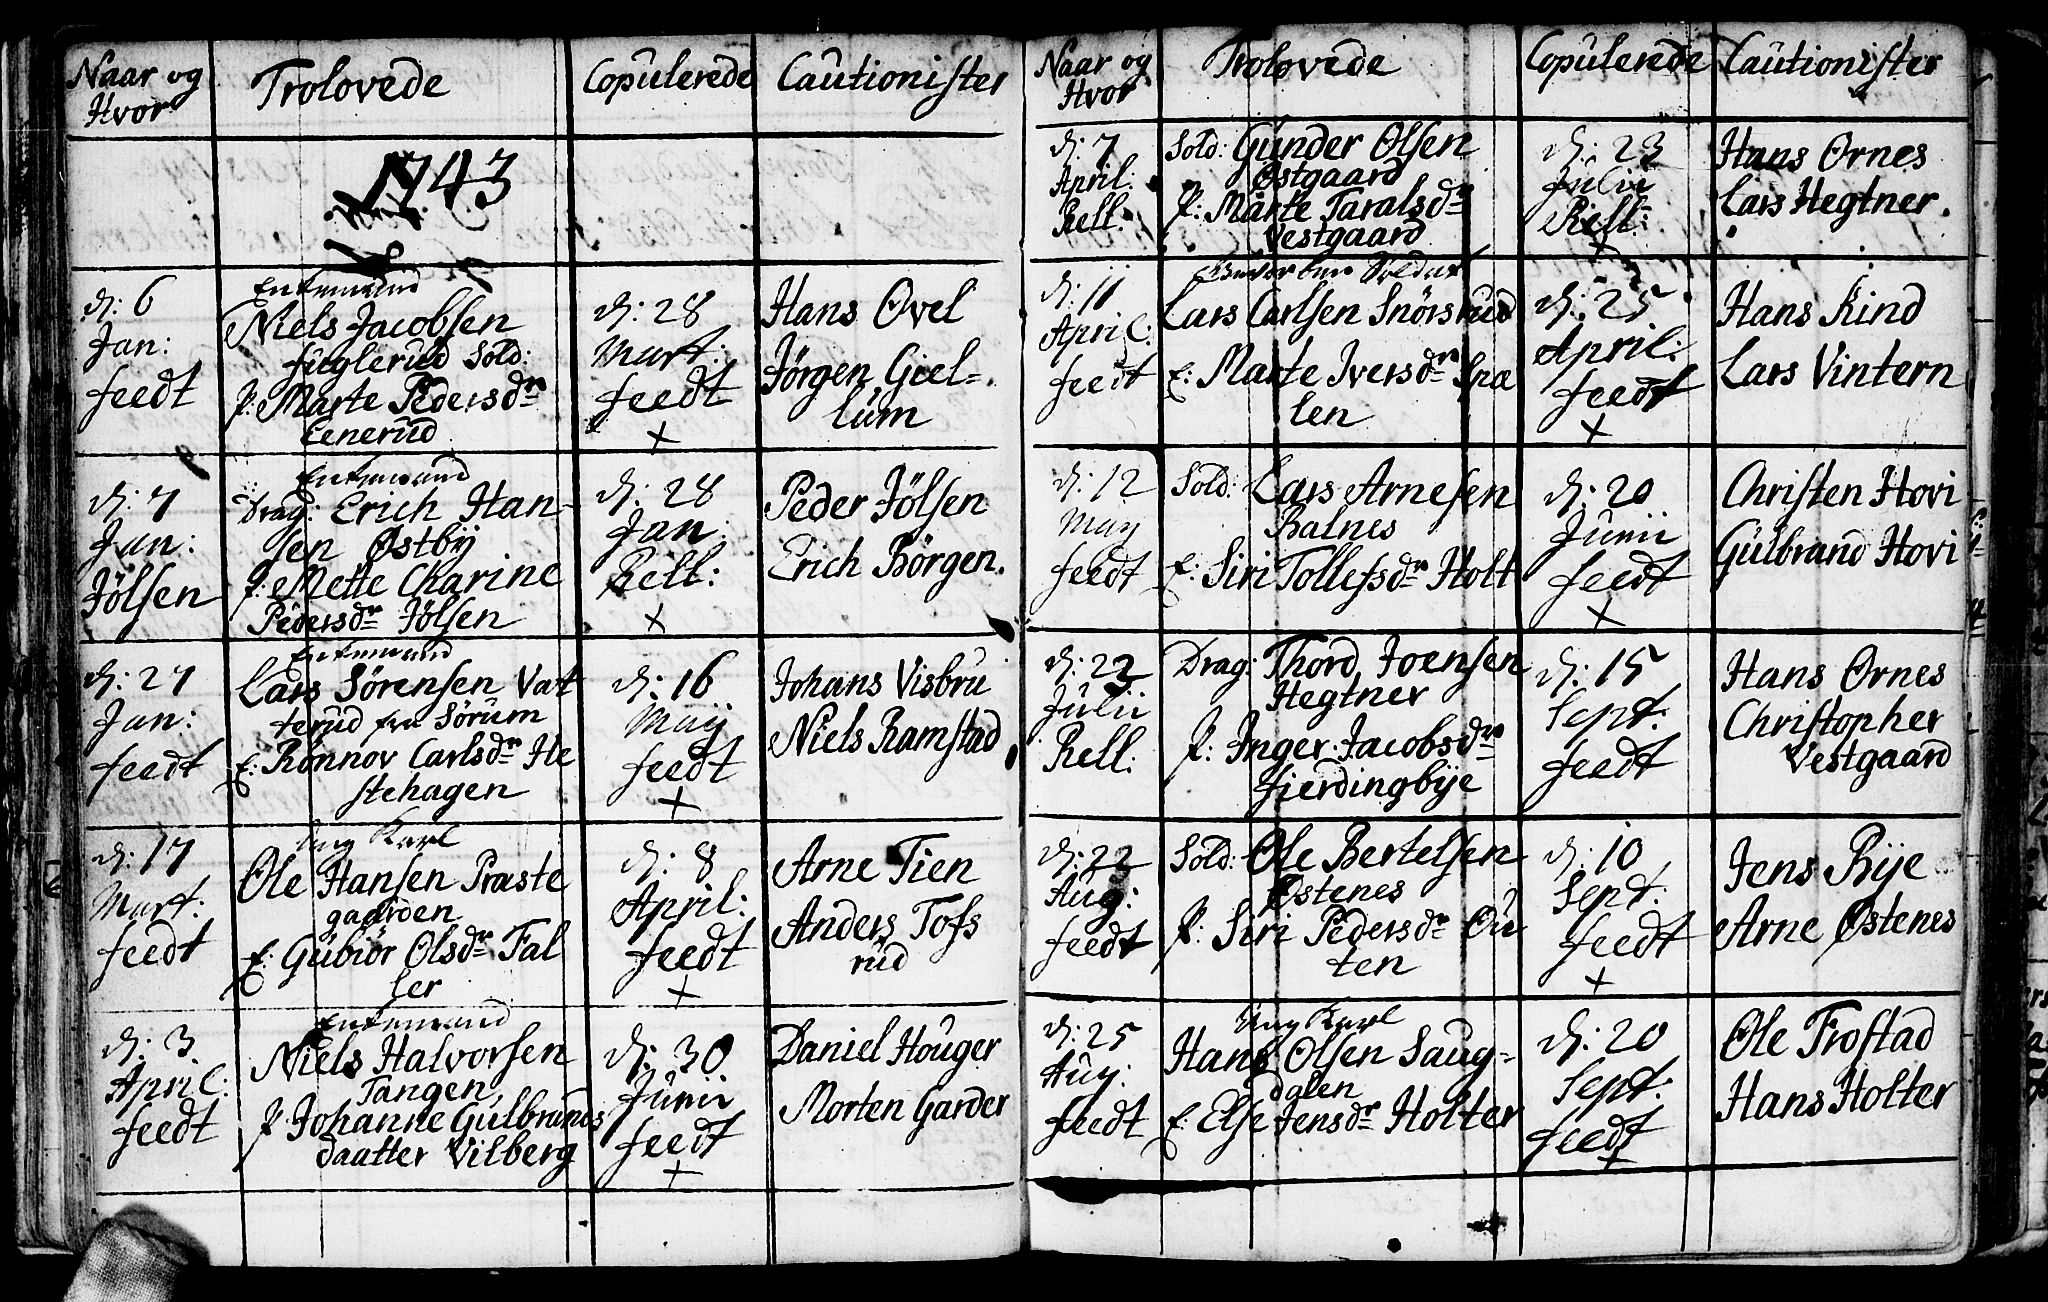 Naar og
Hvor
Trolovede
Copulerede
Cautionister
1743
d: 6
Jan:
feedt
Enkemand
Niels Jacobsen
fuglerud Sold:
P: Marte Pedersdr
Eenerud
d: 28
Mart:
feedt
+
Hans Ovel
Jörgen Giel=
lum
d: 7
Jan:
Jölsen
Enkemand
Drag: Erich Han-
sen Østby
P: Mette Charine
Pedersdr Jölsen
d: 28
Jan:
Rell:
+
Peder Jölsen
Erich Börgen.
d: 27
Jan:
feedt
Enkemand
Lars Sörensen Vat
terud fra Sörum
E: Rönnov Carlsdr He
stehagen
d: 16
Maij
feedt
+
Johans Visbru
Niels Ramstad
d: 17
Mart:
feedt
Ung Karl
Ole Hansen Præste
gaarden
E: Gubiör Olsdr Fal
ler
d: 8
April:
feedt
+
Arne Tien
Anders Tofs
rud
d: 3
April:
feedt
Enkemand
Niels Halvorsen
Tangen
P Johanne Gulbrands
daatter Vilberg
d: 30
Junii
feedt
+
Daniel Houger
Morten Garder
Naar og
Hvor
Trolovede
Copulerede
Cautionister
d: 7
April:
Rell:
Sold: Gunder Olsen
Østgaard
P: Marte Taralsdr
Vestgaard
d: 23
Julii
Rell:
+
Hans Ornes
Lars Hegtner.
d: 11
April:
feedt
Soldat
Lars Carlsen Snörsrud
E: Marte Iversdr Spa
len
d: 25
April:
feedt
+
Hans Kind
Lars Vintern
d: 12
May
feedt
Sold: Lars Arnesen
Balnes
E: Siri Tollefsdr Holt
d: 20
Junii
feedt
+
Christen Hovi
Gulbrand Hovi
d: 22
Julii
Rell:
Drag: Thord Joensen
Hegtner
P: Inger Jacobsdr
fierdingbye
d: 15
Sept:
feedt
Hans Ornes
Christopher
Vestgaard
d: 22
Aug:
feedt
Sold: Ole Bertelsen
Østenes
P: Siri Pedersdr Ou
ten
d: 10
Sept:
feedt
+
Jens Bye
Arne Østenes
d: 25
Aug:
feedt
Ung Karl
Hans Olsen Saug=
dalen
E: Else Jensdr Holter
d: 20
Sept:
feedt
+
Ole Frostad
Hans Holter